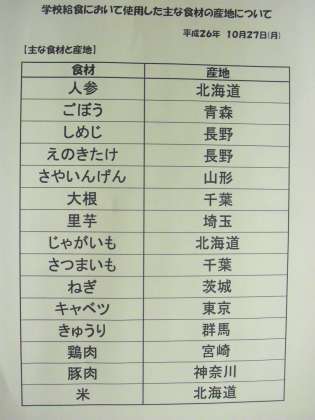 学校給食において使用した主な食材の産地について
平成26年 10月27日(月)
【主な食材と産地】
食材 産地
人参 北海道
ごぼう 青森
しめじ 長野
えのきたけ 長野
さやいんげん 山形
大根 千葉
里芋 埼玉
じゃがいも 北海道
さつまいも 千葉
ねぎ 茨城
キャベツ 東京
きゅうり 群馬
鶏肉 宮崎
豚肉 神奈川
米 北海道